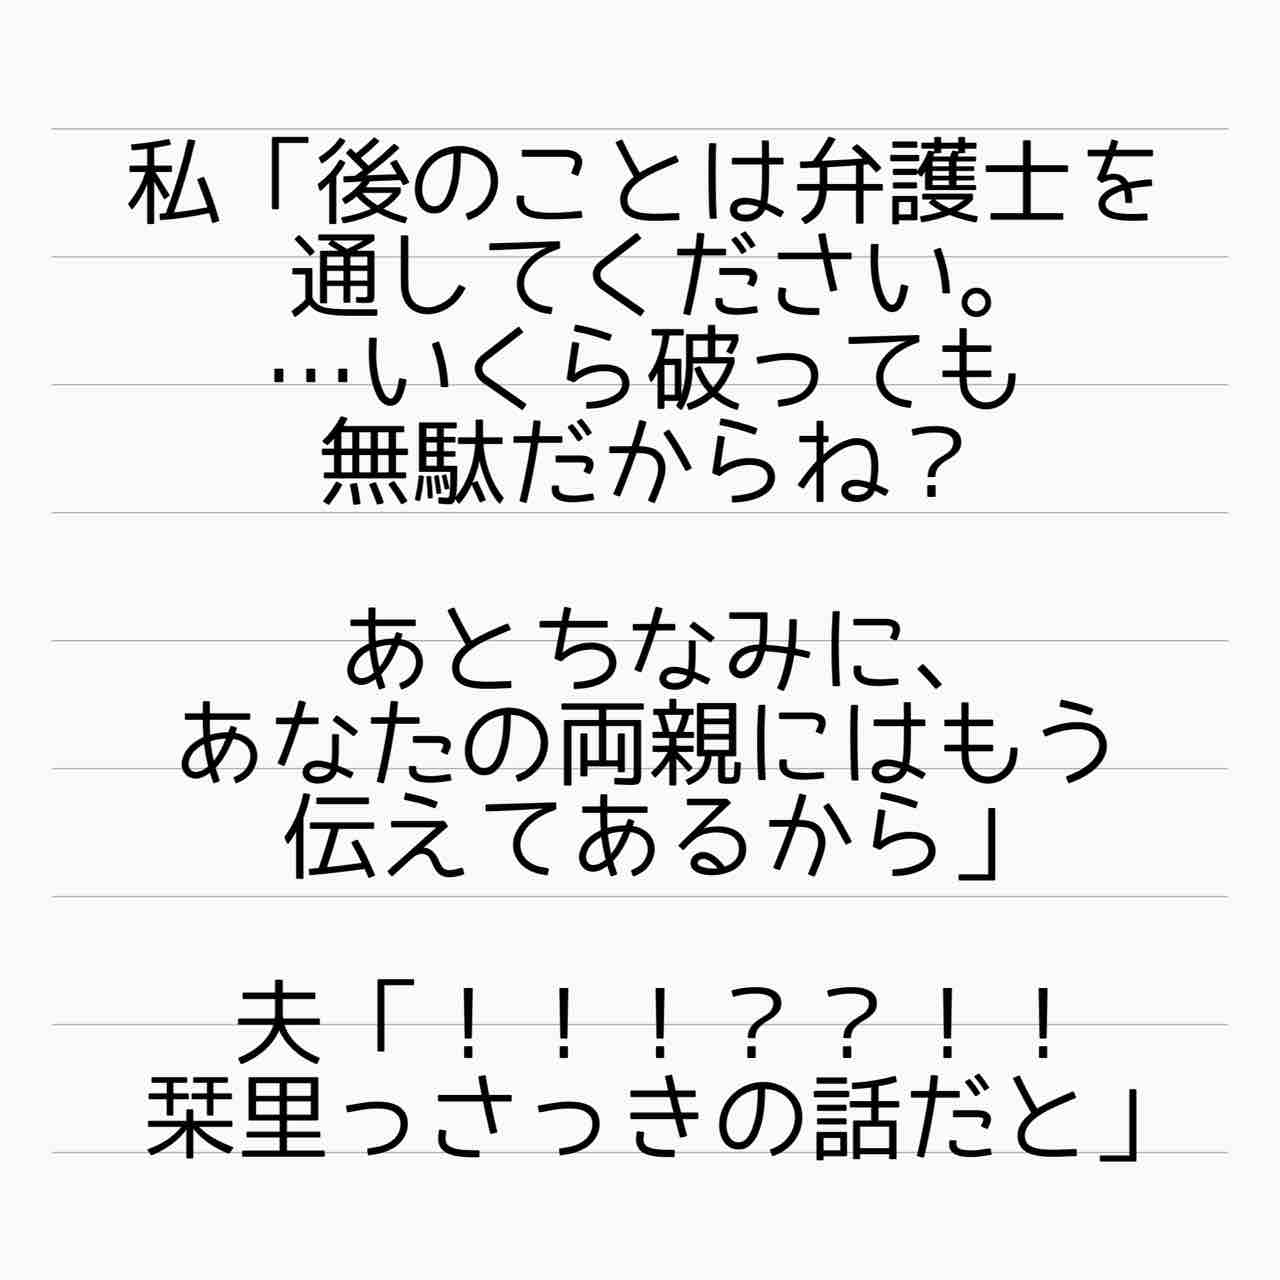 私「後のことは弁護士を
通してください。
…いくら破っても
無駄だからね？
あとちなみに、
あなたの両親にはもう
伝えてあるから」
夫「！！！？？！！
栞里っさっきの話だと」